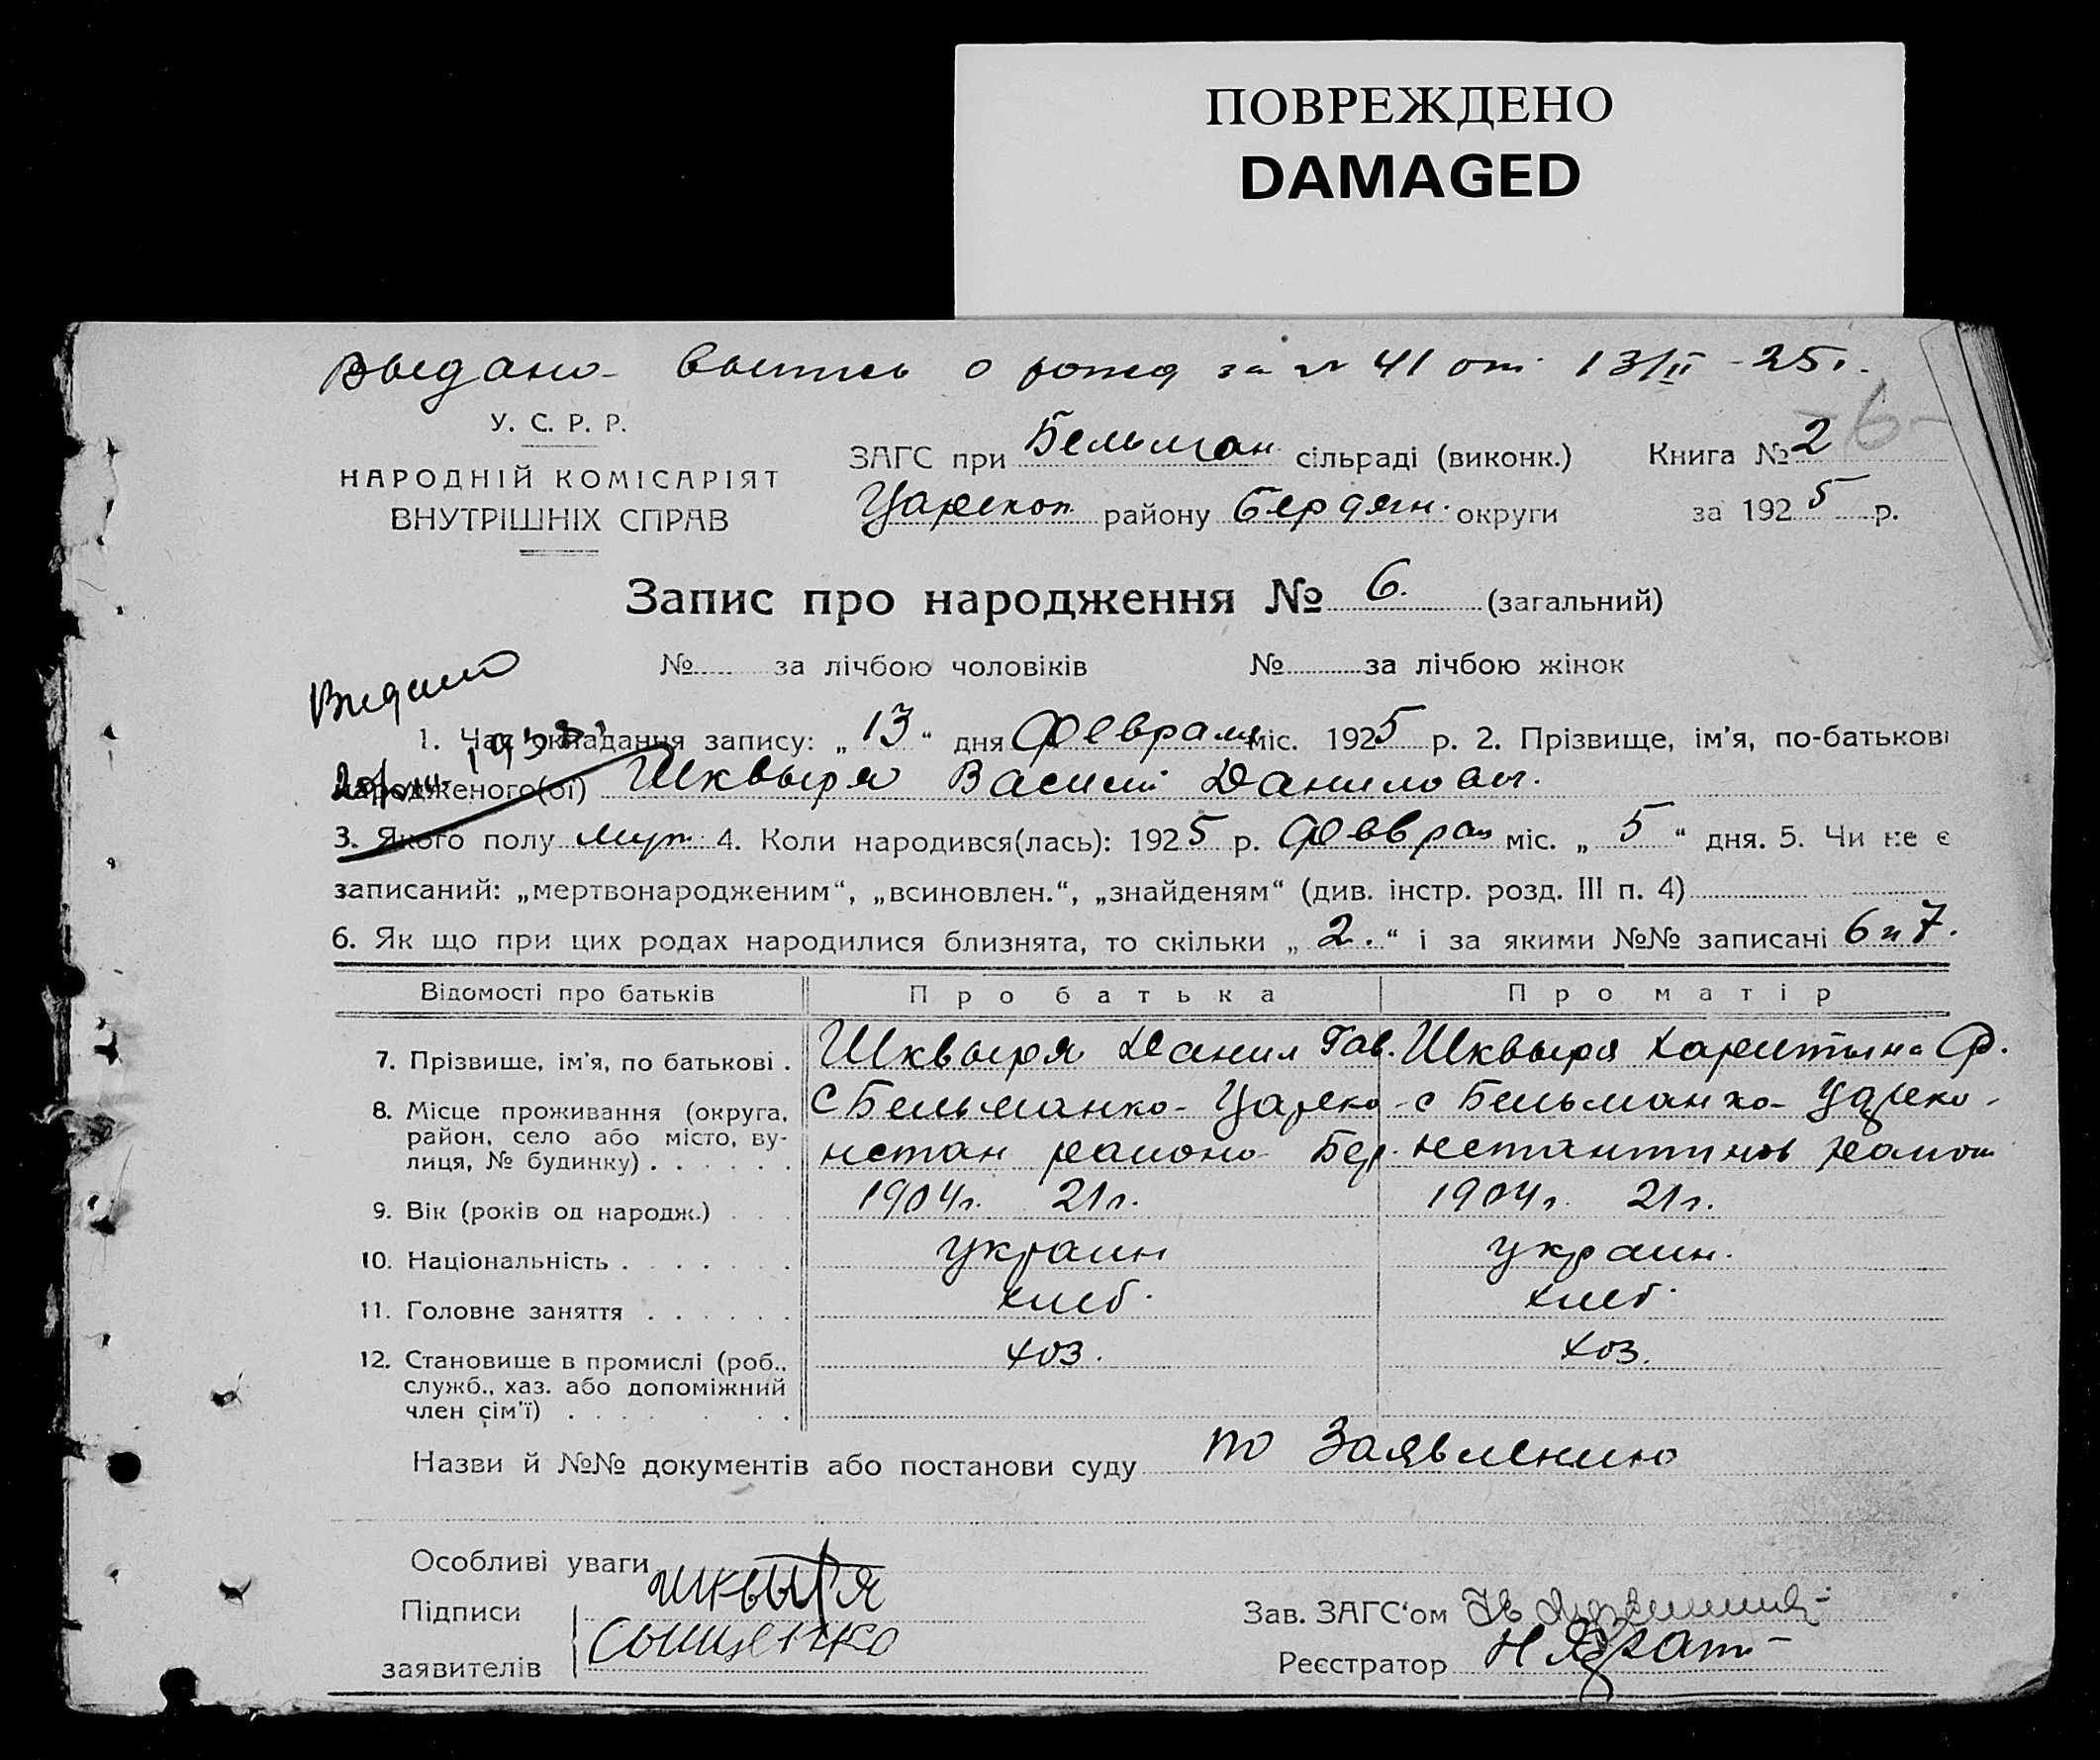 ПОВРЕЖДЕНО
DAMAGED
Выдано выпись о рожд за № 41 от 13/II - 25г.
У. С. Р. Р.
НАРОДНІЙ КОМІСАРІЯТ
ВНУТРІШНІХ СПРАВ
ЗАГС при Бельман сільраді (виконк.) Книга № 2 -6-
Царекон району Бердян. округи за 1925 р.
Запис про народження № 6. (загальний)
№ за лічбою чоловіків № за лічбою жінок
Видано
1. Час складання запису: „13“ дня Февраля міс. 1925 р. 2. Прізвище, ім'я, по-батькові
народженого(ої) Шквыря Василий Данилович.
3. Якого полу муж. 4. Коли народився(лась): 1925 р. Феврал міс. „5“ дня. 5. Чи не є
записаний: „мертвонародженим“, „всиновлен.“, „знайденям“ (див. інстр. розд. III п. 4)
6. Як що при цих родах народилися близнята, то скільки „2.“ і за якими №№ записані 6 и 7.
Відомості про батьків Про батька Про матір
7. Прізвище, ім'я, по батькові . Шквыря Данил Гав. Шквыря Харитына Ф.
8. Місце проживання (округа, район, село або місто, вулиця, № будинку) . . . . . . С Бельманко- Цареконстан района Бер. с Бельманко- Цареконстантинов район
9. Вік (років од народж.) . . . 1904г. 21г. 1904г. 21г.
10. Національність . . . . . . . украин украин.
11. Головне заняття . . . . . . хлеб. хлеб.
12. Становище в промислі (роб., служб., хаз. або допоміжний член сім'ї) . . . . . хоз. хоз.
Назви й №№ документів або постанови суду по заявлению
Особливі уваги
Підписи заявителів Шквыря
Сыщенко
Зав. ЗАГС'ом
Реєстратор